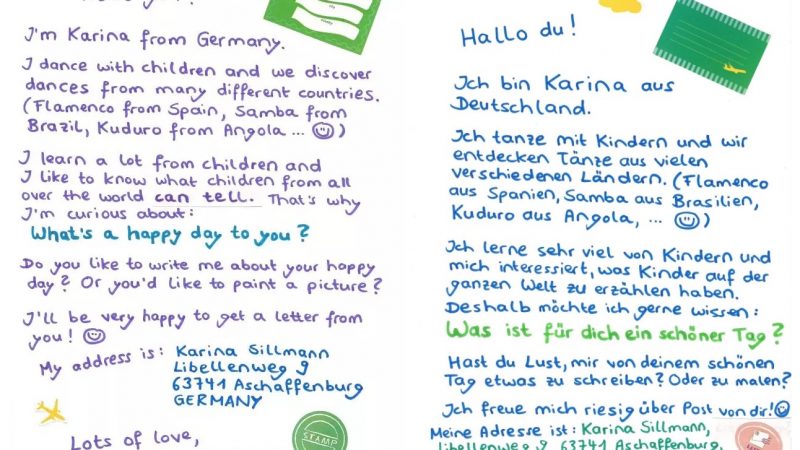 I'm Karina from Germany.
I dance with children and we discover
dances from many different countries.
(Flamenco from Spain, Samba from
Brazil, Kuduro from Angola ... )
I learn a lot from children and
I like to know what children from all
over the world can tell. That's why
I'm curious about:
What's a happy day to you?
Do you like to write me about your happy
day? Or you'd like to paint a picture?
I'll be very happy to get a letter from
you!
My address is: Karina Sillmann
Libellenweg 9
63741 Aschaffenburg
GERMANY
STAMP
Lots of love,
Hallo du!
Ich bin Karina aus
Deutschland.
Ich tanze mit Kindern und wir
entdecken Tänze aus vielen
verschiedenen Ländern. (Flamenco
aus Spanien, Samba aus Brasilien,
Kuduro aus Angola, ... )
Ich lerne sehr viel von Kindern und
mich interessiert, was Kinder auf der
ganzen Welt zu erzählen haben.
Deshalb möchte ich gerne wissen:
Was ist für dich ein schöner Tag?
Hast du Lust, mir von deinem schönen
Tag etwas zu schreiben? Oder zu malen?
Ich freue mich riesig über Post von dir!
Meine Adresse ist: Karina Sillmann,
Libellenweg 9, 63741 Aschaffenburg,